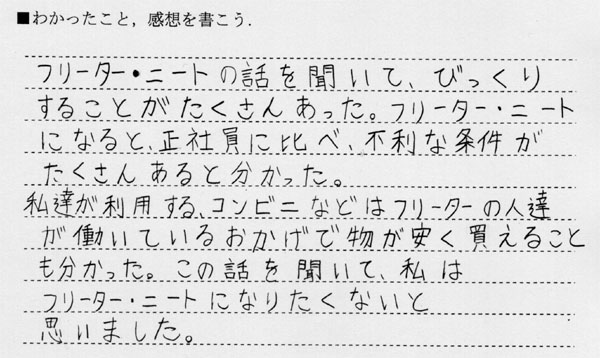 ■わかったこと，感想を書こう．
フリーター・ニートの話を聞いて、びっくり
することがたくさんあった。フリーター・ニート
になると、正社員に比べ、不利な条件が
たくさんあると分かった。
私達が利用する、コンビニなどはフリーターの人達
が働いているおかげで物が安く買えること
も分かった。この話を聞いて、私は
フリーター・ニートになりたくないと
思いました。